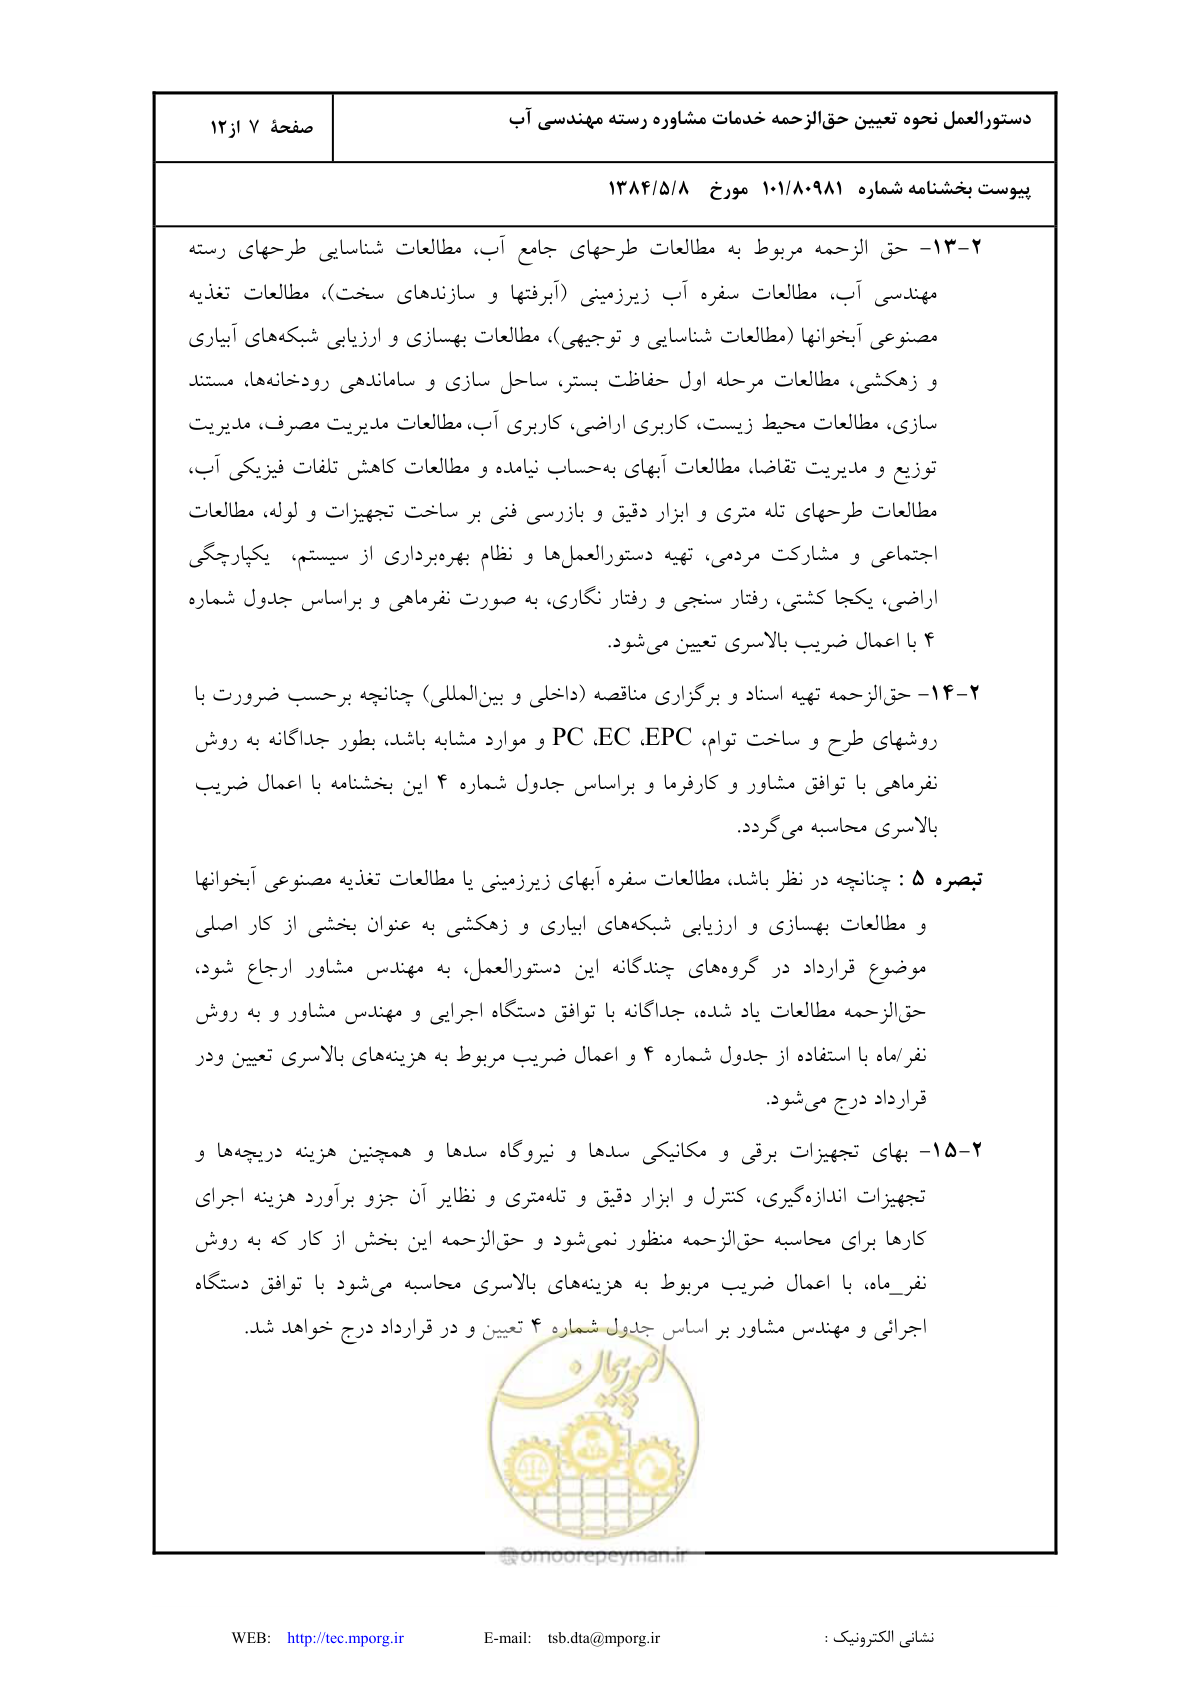 دستورالعمل نحوه تعیین حق‌الزحمه خدمات مشاوره رسته مهندسی آب
صفحهٔ ۷ از۱۲
پیوست بخشنامه شماره ۱۰۱/۸۰۹۸۱ مورخ ۱۳۸۴/۵/۸
۲-۱۳- حق الزحمه مربوط به مطالعات طرحهای جامع آب، مطالعات شناسایی طرحهای رسته
مهندسی آب، مطالعات سفره آب زیرزمینی (آبرفتها و سازندهای سخت)، مطالعات تغذیه
مصنوعی آبخوانها (مطالعات شناسایی و توجیهی)، مطالعات بهسازی و ارزیابی شبکه‌های آبیاری
و زهکشی، مطالعات مرحله اول حفاظت بستر، ساحل سازی و ساماندهی رودخانه‌ها، مستند
سازی، مطالعات محیط زیست، کاربری اراضی، کاربری آب، مطالعات مدیریت مصرف، مدیریت
توزیع و مدیریت تقاضا، مطالعات آبهای به‌حساب نیامده و مطالعات کاهش تلفات فیزیکی آب،
مطالعات طرحهای تله متری و ابزار دقیق و بازرسی فنی بر ساخت تجهیزات و لوله، مطالعات
اجتماعی و مشارکت مردمی، تهیه دستورالعمل‌ها و نظام بهره‌برداری از سیستم، یکپارچگی
اراضی، یکجا کشتی، رفتار سنجی و رفتار نگاری، به صورت نفرماهی و براساس جدول شماره
۴ با اعمال ضریب بالاسری تعیین می‌شود.
۲-۱۴- حق‌الزحمه تهیه اسناد و برگزاری مناقصه (داخلی و بین‌المللی) چنانچه برحسب ضرورت با
روشهای طرح و ساخت توام، EPC، EC، PC و موارد مشابه باشد، بطور جداگانه به روش
نفرماهی با توافق مشاور و کارفرما و براساس جدول شماره ۴ این بخشنامه با اعمال ضریب
بالاسری محاسبه می‌گردد.
تبصره ۵ : چنانچه در نظر باشد، مطالعات سفره آبهای زیرزمینی یا مطالعات تغذیه مصنوعی آبخوانها
و مطالعات بهسازی و ارزیابی شبکه‌های ابیاری و زهکشی به عنوان بخشی از کار اصلی
موضوع قرارداد در گروه‌های چندگانه این دستورالعمل، به مهندس مشاور ارجاع شود،
حق‌الزحمه مطالعات یاد شده، جداگانه با توافق دستگاه اجرایی و مهندس مشاور و به روش
نفر/ماه با استفاده از جدول شماره ۴ و اعمال ضریب مربوط به هزینه‌های بالاسری تعیین ودر
قرارداد درج می‌شود.
۲-۱۵- بهای تجهیزات برقی و مکانیکی سدها و نیروگاه سدها و همچنین هزینه دریچه‌ها و
تجهیزات اندازه‌گیری، کنترل و ابزار دقیق و تله‌متری و نظایر آن جزو برآورد هزینه اجرای
کارها برای محاسبه حق‌الزحمه منظور نمی‌شود و حق‌الزحمه این بخش از کار که به روش
نفر_ماه، با اعمال ضریب مربوط به هزینه‌های بالاسری محاسبه می‌شود با توافق دستگاه
اجرائی و مهندس مشاور بر اساس جدول شماره ۴ تعیین و در قرارداد درج خواهد شد.
امور پیمان
@omoorepeyman.ir
نشانی الکترونیک : E-mail: tsb.dta@mporg.ir WEB: http://tec.mporg.ir